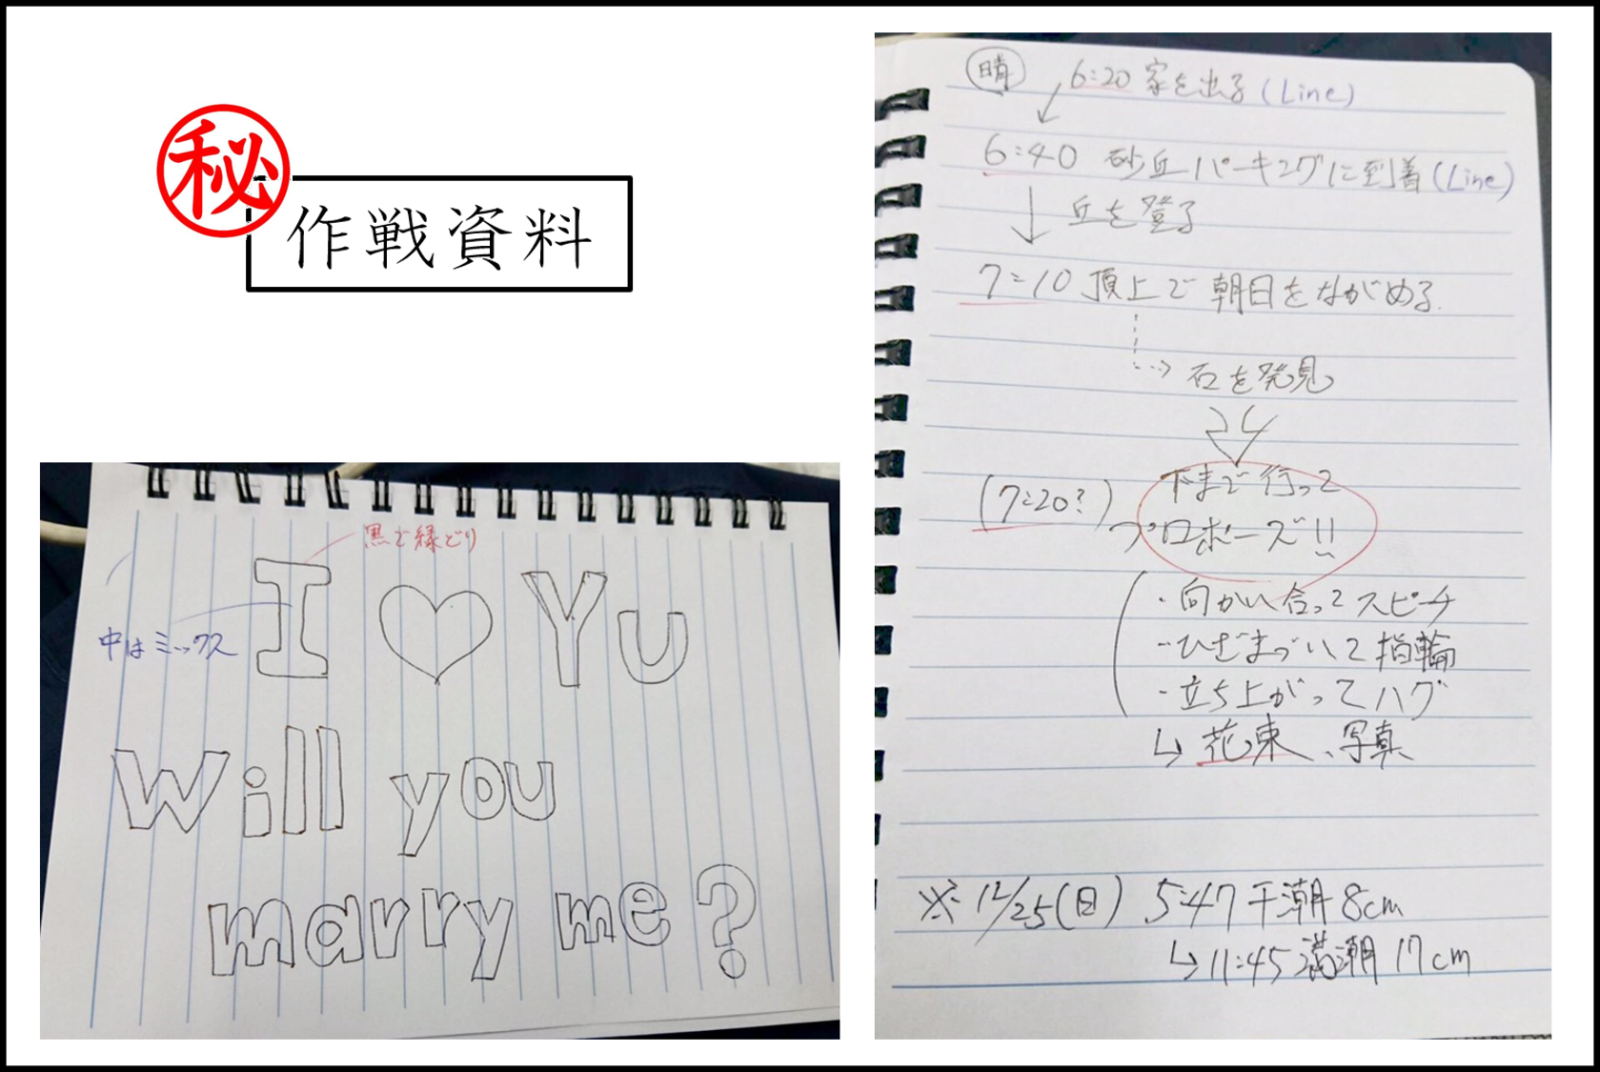 秘
作戦資料
黒で縁どり
I ♡ Yu
中はミックス
Will you
marry me?
晴
6:20 家を出る(Line)
6:40 砂丘パーキングに到着(Line)
丘を登る
7:10 頂上で朝日をながめる.
石を発見
(7:20?)
下まで行って
プロポーズ!!
・向かい合ってスピーチ
・ひざまづいて指輪
・立ち上がってハグ
↳ 花束、写真
※ 12/25(日) 5:47 干潮 8cm
↳ 11:45 満潮 17cm